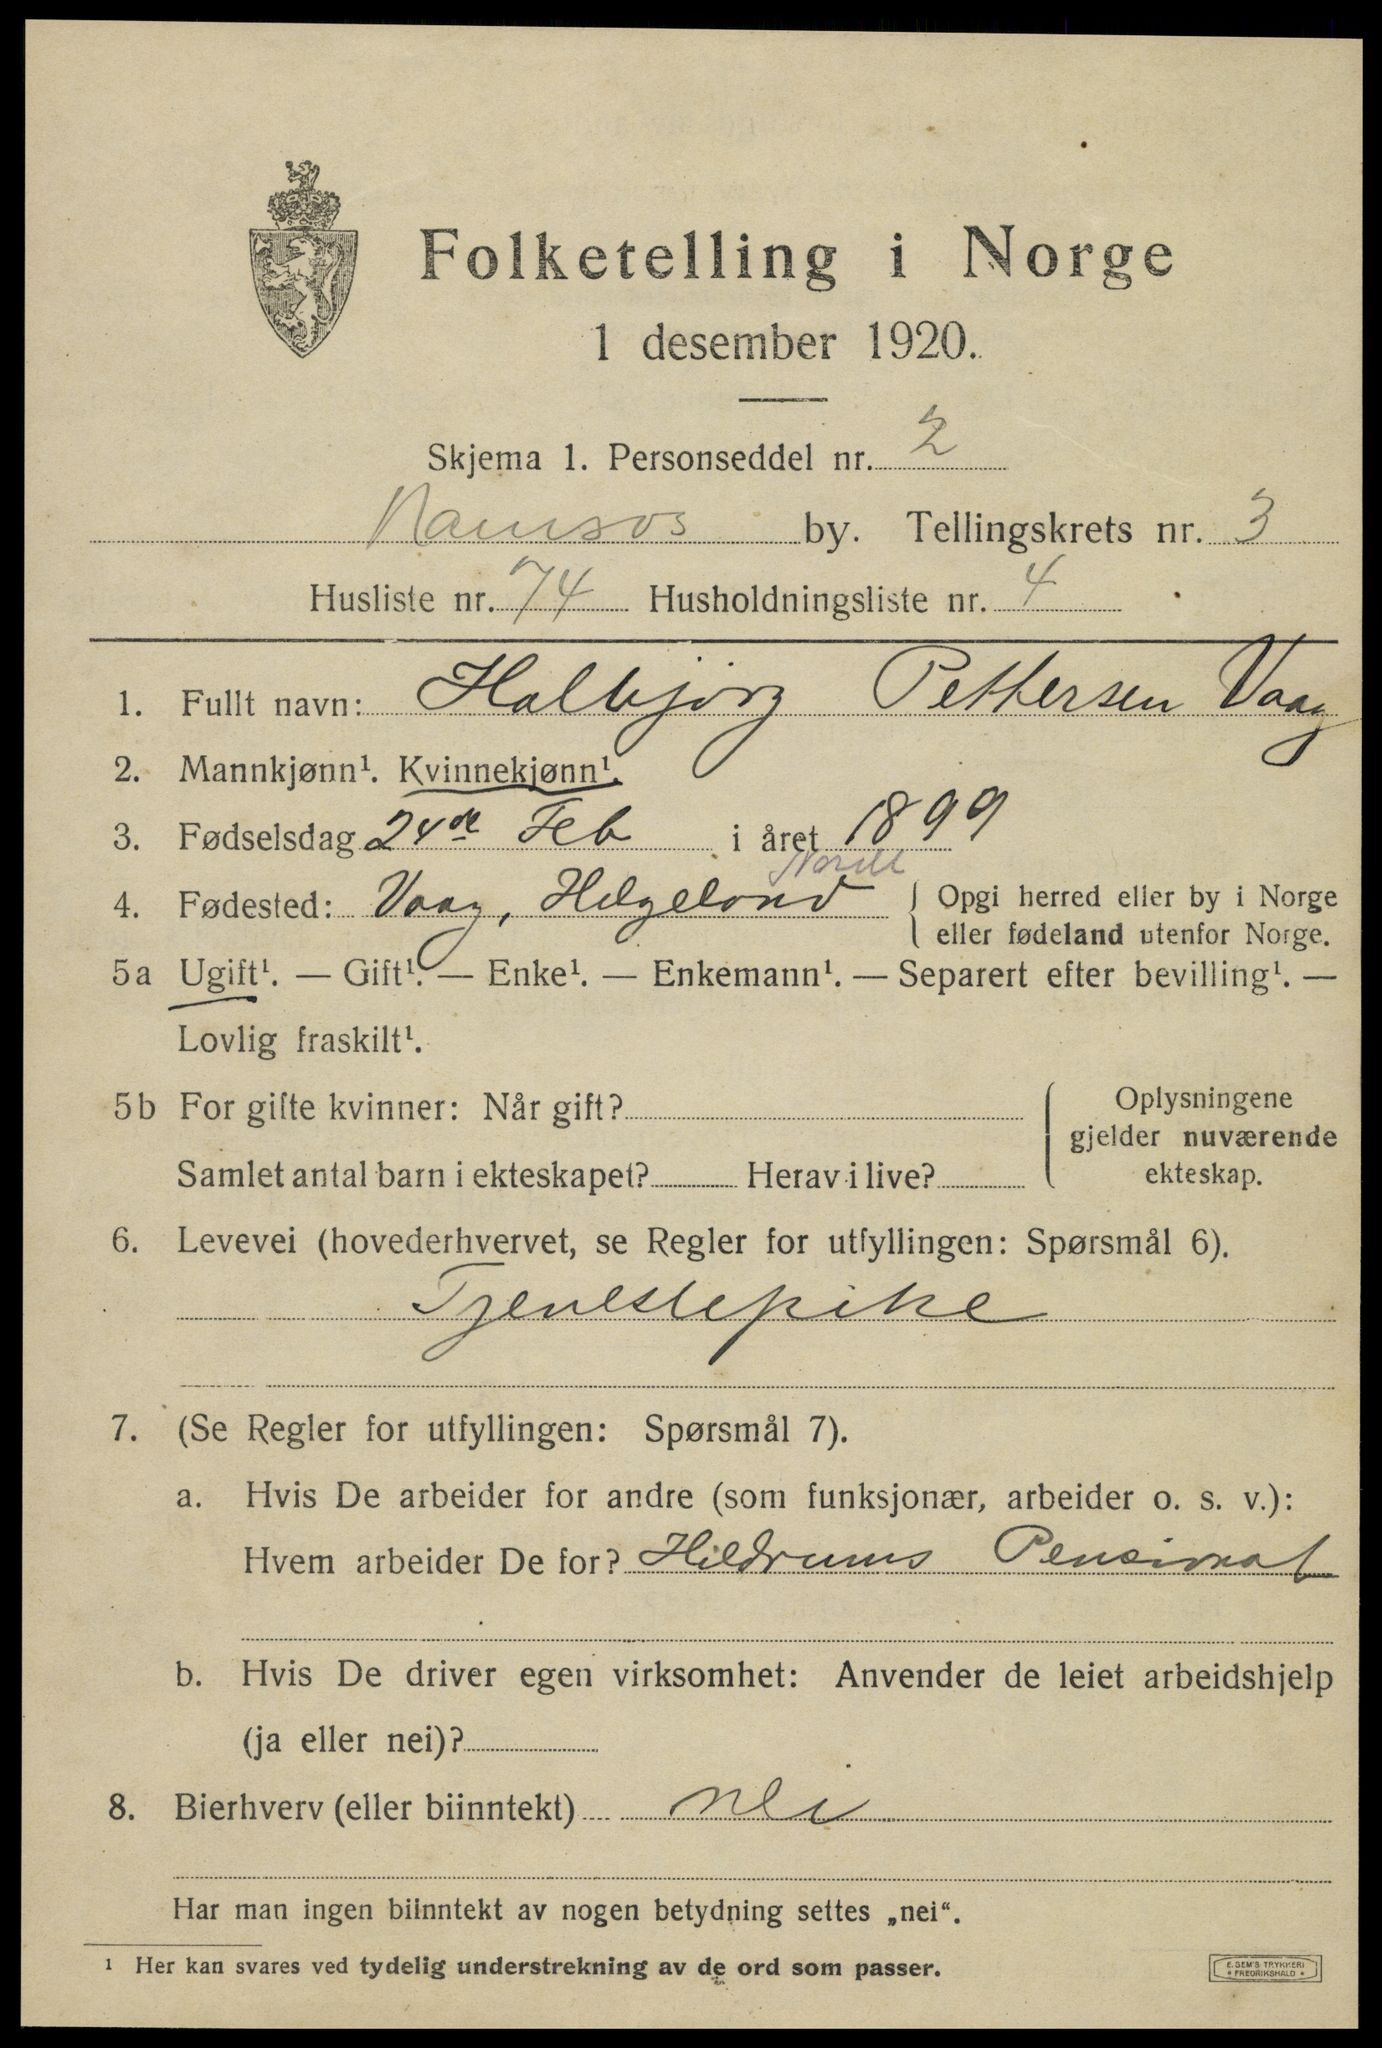 Folketelling i Norge
1 desember 1920.
Skjema 1. Personseddel nr. 2
Namsos by. Tellingskrets nr. 3
Husliste nr. 74 Husholdningsliste nr. 4
1. Fullt navn: Halbjørg Pettersen Vaag
2. Mannkjønn¹. Kvinnekjønn¹.
3. Fødselsdag 24de Feb i året 1899
4. Fødested: Vaag, Helgeland { Opgi herred eller by i Norge
eller fødeland utenfor Norge.
5a Ugift¹. — Gift¹. — Enke¹. — Enkemann¹. — Separert efter bevilling¹. —
Lovlig fraskilt¹.
5b For gifte kvinner: Når gift? { Oplysningene
gjelder nuværende
Samlet antal barn i ekteskapet? Herav i live? ekteskap.
6. Levevei (hovederhvervet, se Regler for utfyllingen: Spørsmål 6).
Tjenestepike
7. (Se Regler for utfyllingen: Spørsmål 7).
a. Hvis De arbeider for andre (som funksjonær, arbeider o. s. v.):
Hvem arbeider De for? Hildrums Pensionat
b. Hvis De driver egen virksomhet: Anvender de leiet arbeidshjelp
(ja eller nei)?
8. Bierhverv (eller biinntekt) nei
Har man ingen biinntekt av nogen betydning settes „nei“.
¹ Her kan svares ved tydelig understrekning av de ord som passer.
E. SEM'S TRYKKERI
* FREDRIKSHALD *